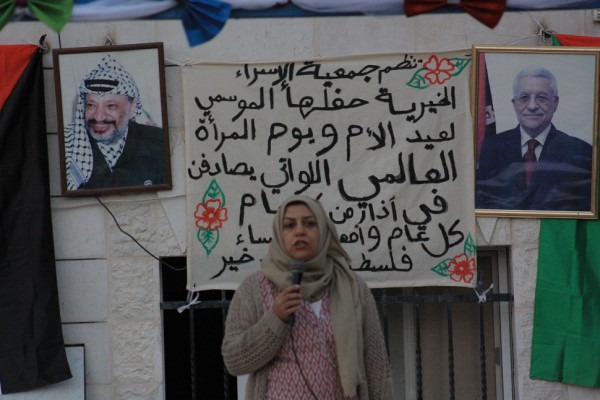 تنظم جمعية الإسراء
الخيرية حفلها الموسمي
لعيد الأم ويوم المرأة
العالمي اللواتي يصادفن
في آذار من عام
كل عام وأمهات ونساء
فلسطين بخير